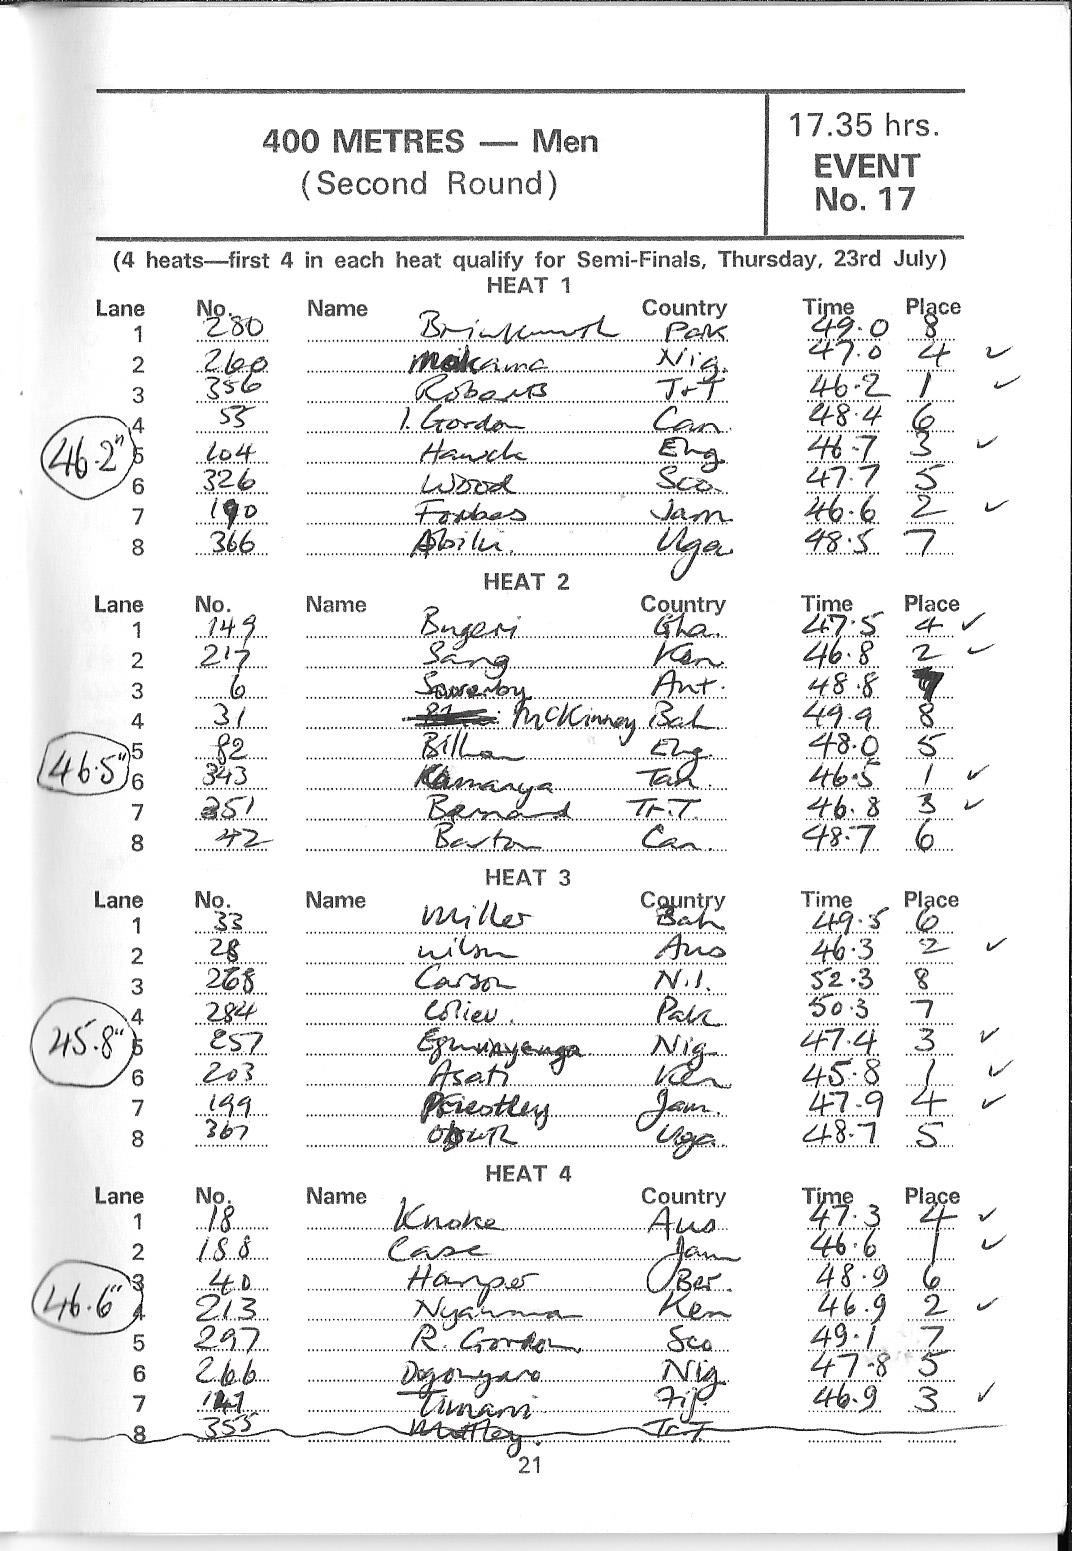 400 METRES — Men
(Second Round)
17.35 hrs.
EVENT
No. 17
(4 heats—first 4 in each heat qualify for Semi-Finals, Thursday, 23rd July)
HEAT 1
Lane No. Name Country Time Place
1 280 Pak 49.0 8
2 260 Makama Nig. 47.0 4 ✓
3 356 Roberts T+T 46.2 1 ✓
4 55 I. Gordon Can 48.4 6
46.2"
5 104 Hauck Eng 46.7 3 ✓
6 326 Wood Sco. 47.7 5
7 190 Forbes Jam 46.6 2 ✓
8 366 Uga 48.5 7
HEAT 2
Lane No. Name Country Time Place
1 149 Bugeri Gha. 47.5 4 ✓
2 217 Sang Ken 46.8 2 ✓
3 6 Sowerby Ant. 48.8 7
4 31 McKinney Bah 49.9 8
46.5"
5 82 Bilham Eng 48.0 5
6 343 Kamanya Tan. 46.5 1 ✓
7 351 Bernard Tr.T. 46.8 3 ✓
8 42 Barton Can. 48.7 6
HEAT 3
Lane No. Name Country Time Place
1 33 Miller Bah 49.5 6
2 28 Wilson Aus 46.3 2 ✓
3 268 Carson N.I. 52.3 8
4 284 Pak 50.3 7
45.8"
5 257 Nig 47.4 3 ✓
6 203 Asati Ken 45.8 1 ✓
7 199 Priestley Jam. 47.9 4 ✓
8 367 Uga 48.7 5
HEAT 4
Lane No. Name Country Time Place
1 18 Knoke Aus 47.3 4 ✓
2 188 Case Jam 46.6 1 ✓
3 40 Harper Ber. 48.9 6
46.6"
4 213 Nyamau Ken 46.9 2 ✓
5 297 R. Gordon Sco 49.1 7
6 266 Dogonyaro Nig 47.8 5
7 141 Tunani Fij. 46.9 3 ✓
8 355 Mottley. Tr.T
21